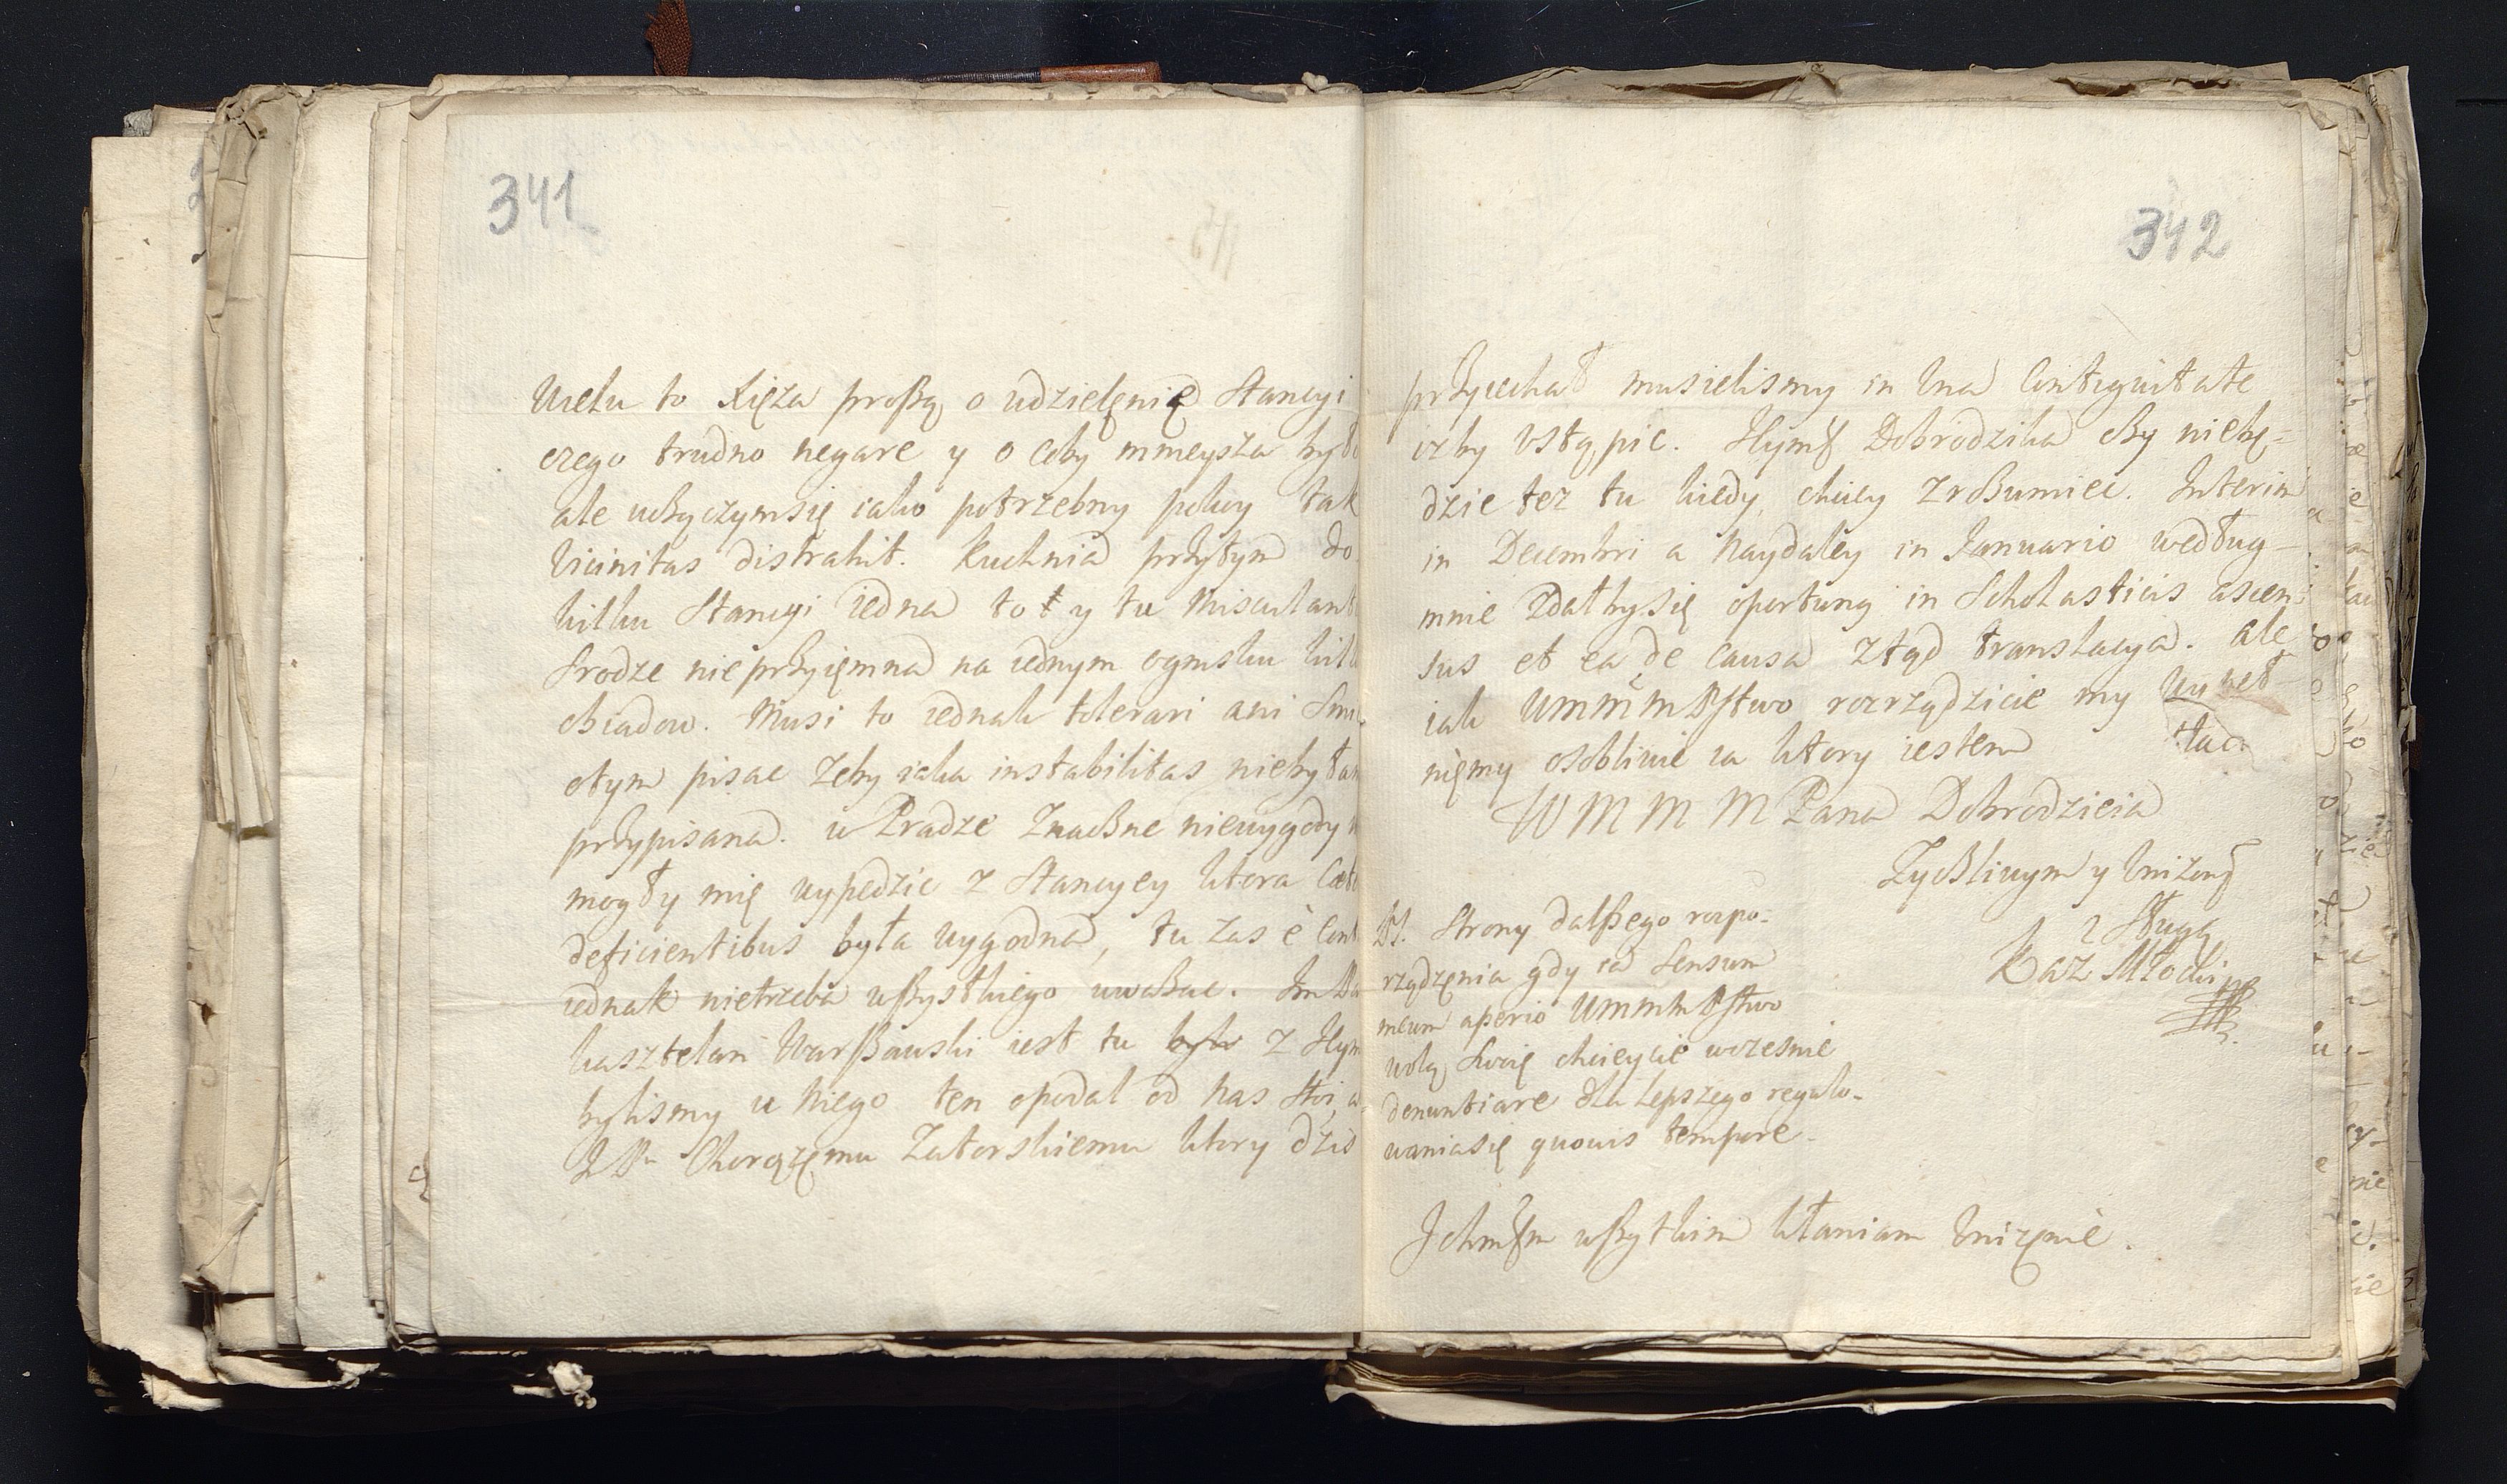 341
Wielu to Xięza proszą o udzielęnię Stancyi
czego trudno negare y o coby mnieysza było
ale uszczyczymsię iako potrzebny pokoy tak
vicinitas distrahit. Kuchnia przytym do
kilku Stancyi iedna tot y tu
Srodze nie przyięmna na iednym ognisku kilk
obiadow. Musi to iednak tolerari ani Smi
otym pisac zeby iaka instabilitas niebyłam
przypisana. w Pradze znaczne niewygody
mogły mię wypedzic z Stancyey ktora
deficientibus była wygodna, tu zas è
iednak nietrzeba wszystkiego uwazac.
kasztelan Warszauski iest tu z Ihym
bylismy u niego ten opodal od nas Stoi,
Chorązęmu Zatorskiemu ktory dzis
342
przyiechał musielismy in una Contiguitate
izby ustąpic. Ihymś Dobrodzika czy niebę=
dzie tez tu kiedy, chciey zrozumiec. Interim
in Decembri a naydaley in Januario według
mnie zdałbysię oportuny in Scholasticis ascen=
sus et ea de causa ztąd translacya. ale
iak UMMMPstwo rozrządzicie my
nięmy osobliwie ia ktory iestem
WMMM Pana Dobrodzieia
Zyczliwym y Unizonym
Sługą
Kaz Młocki
PS. Strony dalszego rozpo=
rządzęnia gdy ia Sensum
meum aperio UMMMPstwo
wolą Swoię chcieycie wczesnie
denuntiare dla lepszego regulo-
waniasię quovis tempore.
Ichmśm wszytkim kłaniam unizęnie.